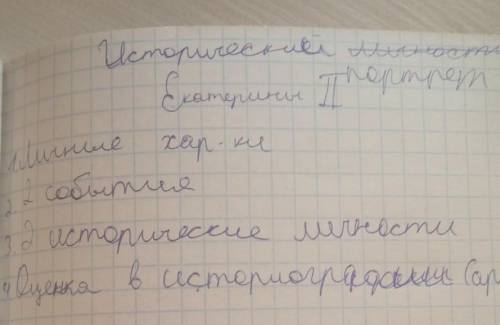 Исторический личности
портрет
Екатерины II
1. Личные хар-ки
2. 2 события
3. 2 исторические личности
4. Оценка в историографии (ар